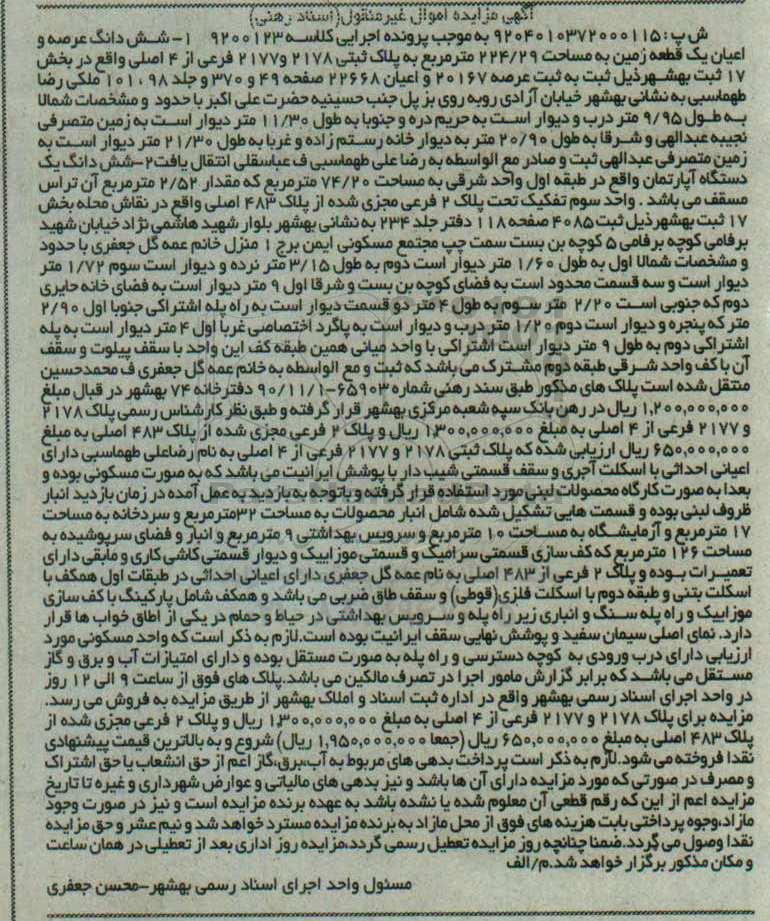 آگهی مزایده اموال غیرمنقول(اسناد رهنی)
ش پ: ۹۲۰۴۰۱۰۳۷۲۰۰۰۱۱۵ به موجب پرونده اجرایی کلاسه ۹۲۰۰۱۲۳ ۱- شش دانگ عرصه و
اعیان یک قطعه زمین به مساحت ۲۲۴/۲۹ مترمربع به پلاک ثبتی ۲۱۷۸ و۲۱۷۷ فرعی از ۴ اصلی واقع در بخش
۱۷ ثبت بهشهرذیل ثبت به ثبت عرصه ۲۰۱۶۷ و اعیان ۲۲۶۶۸ صفحه ۴۹ و ۳۷۰ و جلد ۹۸ ، ۱۰۱ ملکی رضا
طهماسبی به نشانی بهشهر خیابان آزادی روبه روی بز پل جنب حسینیه حضرت علی اکبر با حدود و مشخصات شمالا
به طول ۹/۹۵ متر درب و دیوار است به حریم دره و جنوبا به طول ۱۱/۳۰ متر دیوار است به زمین متصرفی
نجیبه عبدالهی و شرقا به طول ۲۰/۹۰ متر به دیوار خانه رستم زاده و غربا به طول ۲۱/۳۰ متر دیوار است به
زمین متصرفی عبدالهی ثبت و صادر مع الواسطه به رضا علی طهماسبی ف عباسقلی انتقال یافت۲-شش دانگ یک
دستگاه آپارتمان واقع در طبقه اول واحد شرقی به مساحت ۷۴/۲۰ مترمربع که مقدار ۲/۵۲ مترمربع آن تراس
مسقف می باشد . واحد سوم تفکیک تحت پلاک ۲ فرعی مجزی شده از پلاک ۴۸۳ اصلی واقع در نقاش محله بخش
۱۷ ثبت بهشهرذیل ثبت ۴۰۸۵ صفحه ۱۱۸ دفتر جلد ۲۳۴ به نشانی بهشهر بلوار شهید هاشمی نژاد خیابان شهید
برفامی کوچه برفامی ۵ کوچه بن بست سمت چپ مجتمع مسکونی ایمن برج ۱ منزل خانم عمه گل جعفری با حدود
و مشخصات شمالا اول به طول ۱/۶۰ متر دیوار است دوم به طول ۳/۱۵ متر نرده و دیوار است سوم ۱/۷۲ متر
دیوار است و سه قسمت محدود است به فضای کوچه بن بست و شرقا اول ۹ متر دیوار است به فضای خانه حایری
دوم که جنوبی است ۲/۲۰ متر سوم به طول ۴ متر دو قسمت دیوار است به راه پله اشتراکی جنوبا اول ۲/۹۰
متر که پنجره و دیوار است دوم ۱/۲۰ متر درب و دیوار است به پاگرد اختصاصی غربا اول ۴ متر دیوار است به پله
اشتراکی دوم به طول ۹ متر دیوار است اشتراکی با واحد میانی همین طبقه کف این واحد با سقف پیلوت و سقف
آن با کف واحد شرقی طبقه دوم مشترک می باشد که ثبت و مع الواسطه به خانم عمه گل جعفری ف محمدحسین
منتقل شده است پلاک های مذکور طبق سند رهنی شماره ۶۵۹۰۳-۹۰/۱۱/۱ دفترخانه ۷۴ بهشهر در قبال مبلغ
۱,۲۰۰,۰۰۰,۰۰۰ ریال در رهن بانک سپه شعبه مرکزی بهشهر قرار گرفته و طبق نظر کارشناس رسمی پلاک ۲۱۷۸
و ۲۱۷۷ فرعی از ۴ اصلی به مبلغ ۱,۳۰۰,۰۰۰,۰۰۰ ریال و پلاک ۲ فرعی مجزی شده از پلاک ۴۸۳ اصلی به مبلغ
۶۵۰,۰۰۰,۰۰۰ ریال ارزیابی شده که پلاک ثبتی ۲۱۷۸ و ۲۱۷۷ فرعی از ۴ اصلی به نام رضاعلی طهماسبی دارای
اعیانی احداثی با اسکلت آجری و سقف قسمتی شیب دار با پوشش ایرانیت می باشد که به صورت مسکونی بوده و
بعدا به صورت کارگاه محصولات لبنی مورد استفاده قرار گرفته و باتوجه به بازدید به عمل آمده در زمان بازدید انبار
ظروف لبنی بوده و قسمت هایی تشکیل شده شامل انبار محصولات به مساحت ۳۲مترمربع و سردخانه به مساحت
۱۷ مترمربع و آزمایشگاه به مساحت ۱۰ مترمربع و سرویس بهداشتی ۹ مترمربع و انبار و فضای سرپوشیده به
مساحت ۱۲۶ مترمربع که کف سازی قسمتی سرامیک و قسمتی موزاییک و دیوار قسمتی کاشی کاری و مابقی دارای
تعمیرات بوده و پلاک ۲ فرعی از ۴۸۳ اصلی به نام عمه گل جعفری دارای اعیانی احداثی در طبقات اول همکف با
اسکلت بتنی و طبقه دوم با اسکلت فلزی(قوطی) و سقف طاق ضربی می باشد و همکف شامل پارکینگ با کف سازی
موزاییک و راه پله سنگ و انباری زیر راه پله و سرویس بهداشتی در حیاط و حمام در یکی از اطاق خواب ها قرار
دارد. نمای اصلی سیمان سفید و پوشش نهایی سقف ایرانیت بوده است.لازم به ذکر است که واحد مسکونی مورد
ارزیابی دارای درب ورودی به کوچه دسترسی و راه پله به صورت مستقل بوده و دارای امتیازات آب و برق و گاز
مستقل می باشد که برابر گزارش مامور اجرا در تصرف مالکین می باشد.پلاک های فوق از ساعت ۹ الی ۱۲ روز
در واحد اجرای اسناد رسمی بهشهر واقع در اداره ثبت اسناد و املاک بهشهر از طریق مزایده به فروش می رسد.
مزایده برای پلاک ۲۱۷۸ و ۲۱۷۷ فرعی از ۴ اصلی به مبلغ ۱,۳۰۰,۰۰۰,۰۰۰ ریال و پلاک ۲ فرعی مجزی شده از
پلاک ۴۸۳ اصلی به مبلغ ۶۵۰,۰۰۰,۰۰۰ ریال (جمعا ۱,۹۵۰,۰۰۰,۰۰۰ ریال) شروع و به بالاترین قیمت پیشنهادی
نقدا فروخته می شود.لازم به ذکر است پرداخت بدهی های مربوط به آب،برق،گاز اعم از حق انشعاب یا حق اشتراک
و مصرف در صورتی که مورد مزایده دارای آن ها باشد و نیز بدهی های مالیاتی و عوارض شهرداری و غیره تا تاریخ
مزایده اعم از این که رقم قطعی آن معلوم شده یا نشده باشد به عهده برنده مزایده است و نیز در صورت وجود
مازاد،وجوه پرداختی بابت هزینه های فوق از محل مازاد به برنده مزایده مسترد خواهد شد و نیم عشر و حق مزایده
نقدا وصول می گردد.ضمنا چنانچه روز مزایده تعطیل رسمی گردد،مزایده روز اداری بعد از تعطیلی در همان ساعت
و مکان مذکور برگزار خواهد شد.م/الف
مسئول واحد اجرای اسناد رسمی بهشهر-محسن جعفری